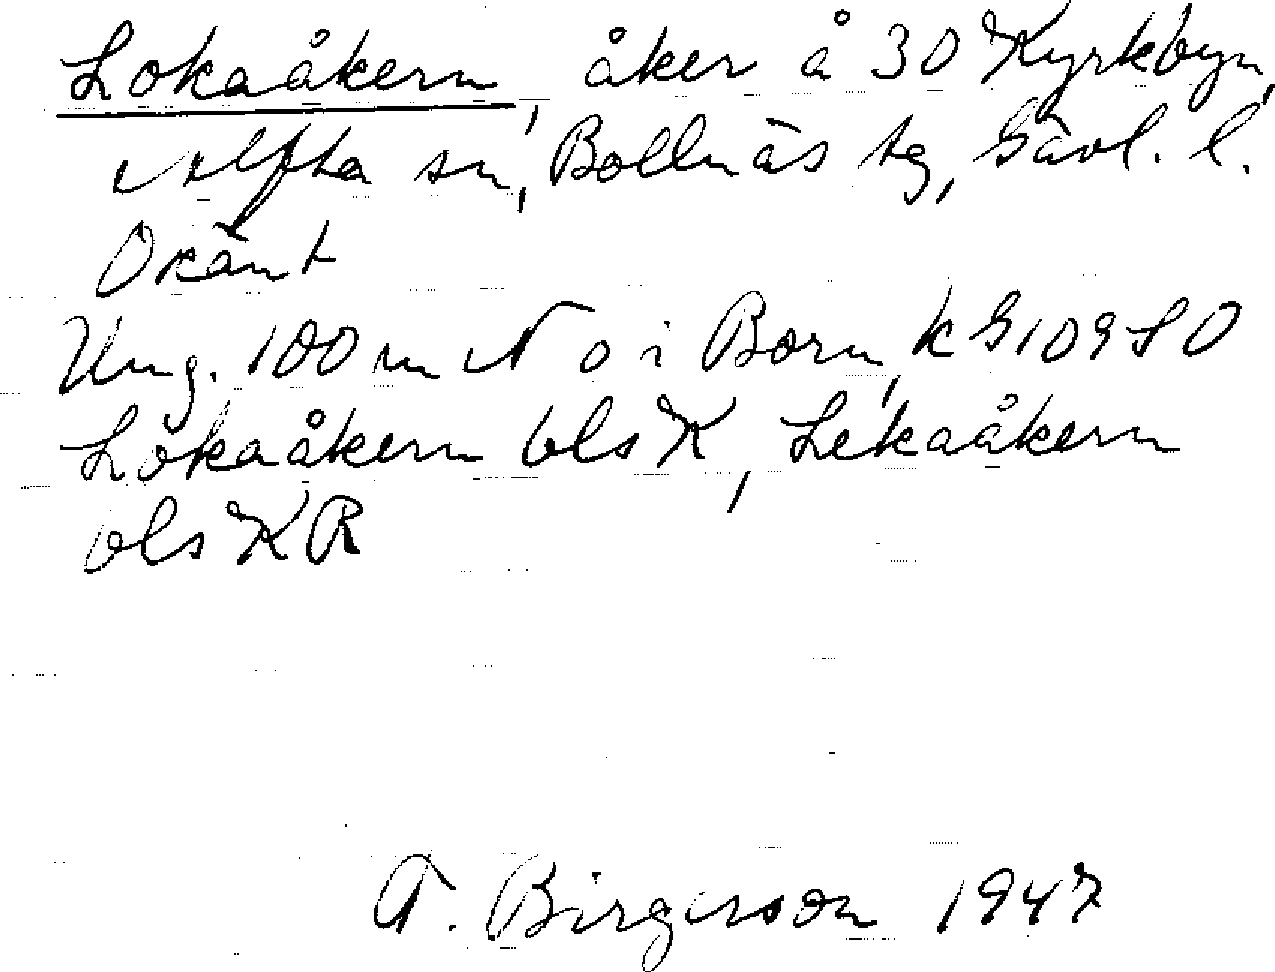 Lokaåkern, åker å 30 Kyrkbyn,
Alfta sn, Bollnäs tg, Gävl. l.
Okänt
Ung. 100 m N o i Born, k G 109 S O
Lokaåkern bls K, Lekaåkern
bls K R
F. Birgerson 1947